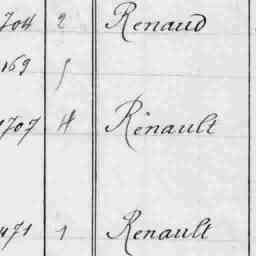 704 2 Renaud
169 5
1707 4 Renault
471 1 Renault